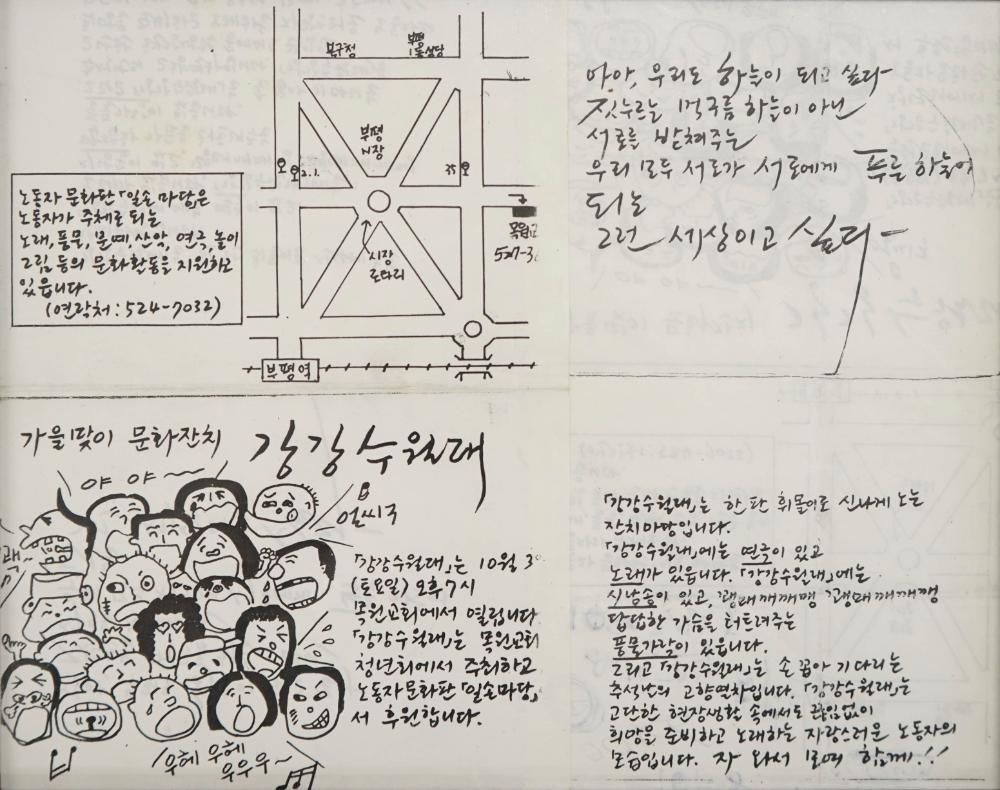 북구청
부평
1동성당
부평
시장
시장
로타리
부평역
노동자 문화판 「일손마당」은
노동자가 주체로 되는
노래, 풍물, 문예 산악, 연극, 놀이
그림 등의 문화활동을 지원하고
있읍니다.
(연락처 : 524-7032)
아아, 우리도 하늘이 되고 싶다
짓누르는 먹구름 하늘이 아닌
서로를 받쳐주는
우리 모두 서로가 서로에게 푸른 하늘이
되는
그런 세상이고 싶다
가을맞이 문화잔치 강강수월래
야 야~
얼씨구
「강강수월래」는 10월 3
(토요일) 오후 7시
목원교회에서 열립니다
「강강수월래」는 목원교회
청년회에서 주최하고
노동자문화판 「일손마당」
서 후원합니다.
우헤 우헤
우우우~
「강강수월래」는 한판 휘몰이로 신나게 노는
잔치마당입니다.
「강강수월래」에는 연극이 있고
노래가 있읍니다. 「강강수월래」에는
시낭송이 있고, 괭매깨깨깽 괭매깨깨깽
답답한 가슴을 터트려주는
풍물가락이 있읍니다.
그리고 「강강수월래」는 손꼽아 기다리는
추석날의 고향열차입니다. 「강강수월래」는
고단한 현장생활 속에서도 끊임없이
희망을 준비하고 노래하는 자랑스러운 노동자의
모습입니다. 자 와서 모여 함께!!